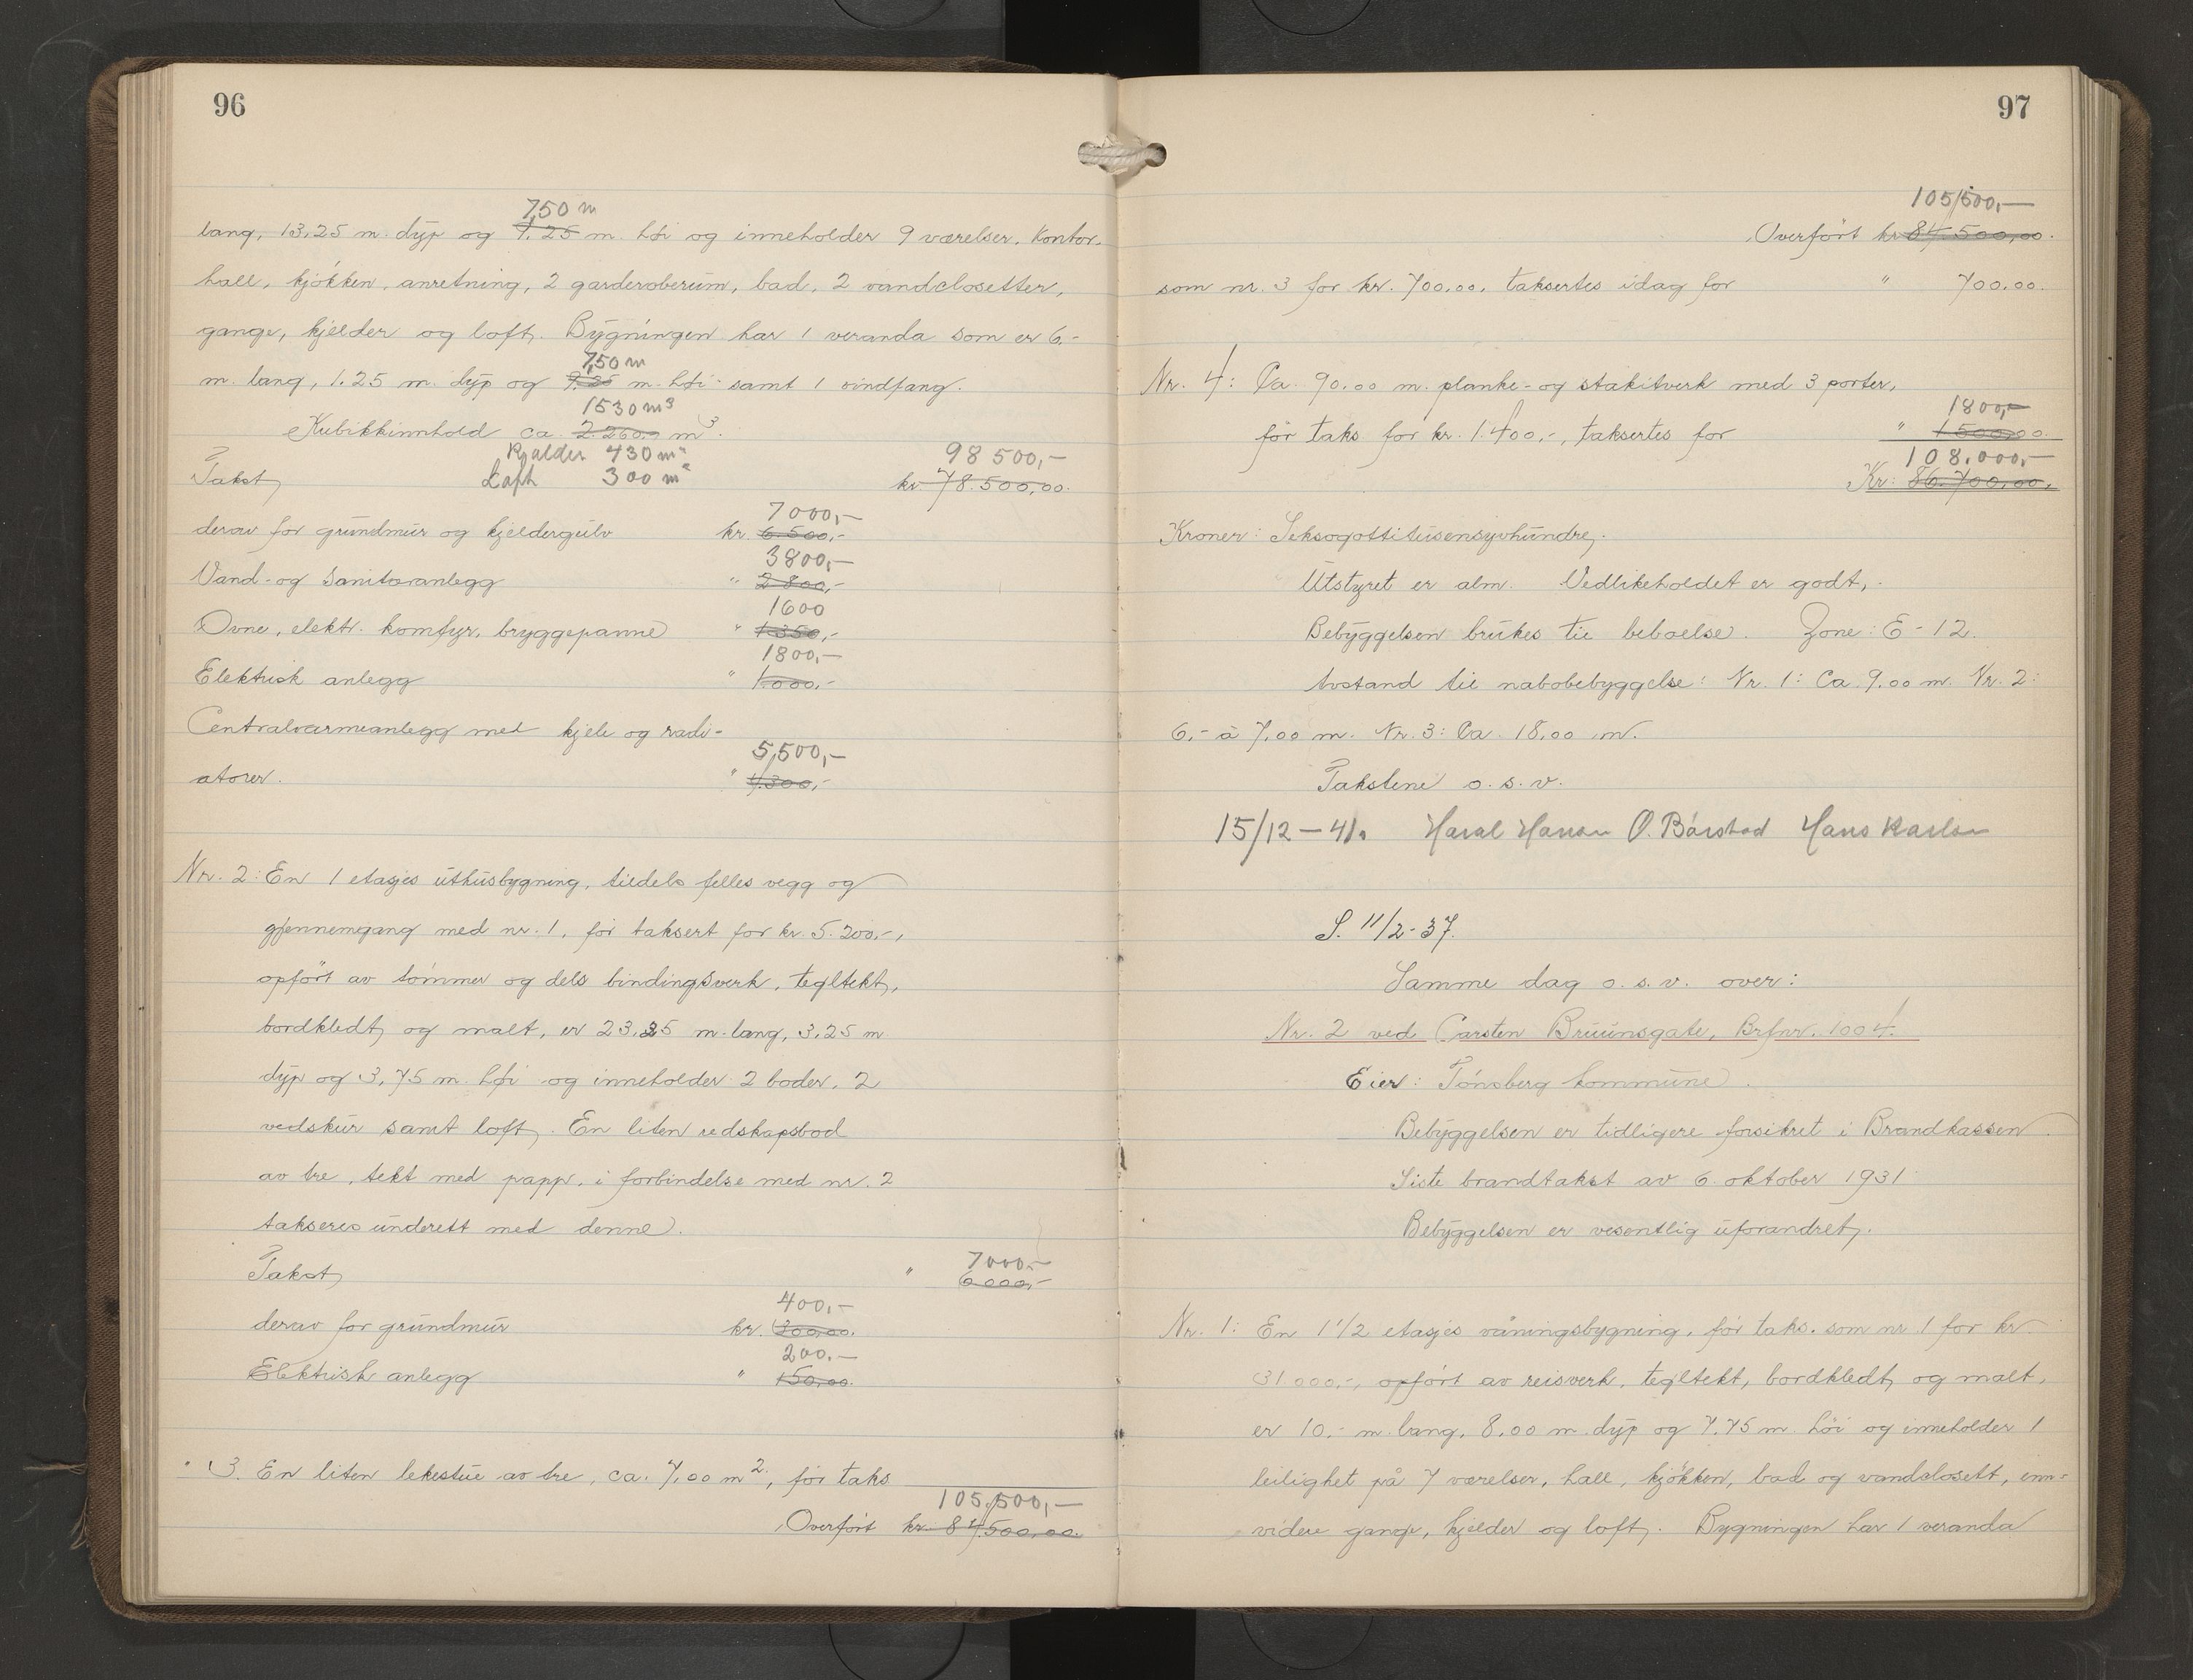 96
7,50 m
lang, 13.25 m. dyp og 9.25 m. høi og inneholder 9 værelser, kontor,
hall, kjøkken, anretning, 2 garderoberum, bad, 2 vandclosetter,
gange, kjelder og loft. Bygningen har 1 veranda som er 6.-
7,50 m
m. lang, 1.25 m. dyp og 9.25 m. høi samt 1 vindfang.
1530 m³
Kubikkinnhold ca. 2.260.0 m³.
Kjælder 430 m²
98 500,-
Takst Loft 300 m² kr. 78.500,00.
7000,-
derav for grundmur og kjeldergulv kr. 6.500,-
3800,-
Vand- og Sanitæranlegg " 2.800,-
1600
Ovne, elektr. komfyr, bryggepanne " 1.350,-
1800,-
Elektrisk anlegg " 1.000,-
Centralvarmeanlegg med kjele og radi-
5,500,-
atorer. " 4.300,-
Nr. 2: En 1 etasjes uthusbygning, tildels felles vegg og
gjennemgang med nr. 1, før taksert for kr. 5.200,-,
opført av tømmer og dels bindingsverk, tegltekt,
bordkledt og malt, er 23.25 m. lang, 3.25 m
dyp og 3,75 m. høi og inneholder 2 boder, 2
vedskur samt loft. En liten redskapsbod
av tre, tekt med papp, i forbindelse med nr. 2
takseres underett med denne.
7000,-
Takst " 6.000,-
400,-
derav for grundmur kr. 300,00.
200,-
Elektrisk anlegg " 150,00.
" 3. En liten lekestue av tre, ca. 7,00 m², før taks
105,500,-
Overført kr. 84.500,00.
97
105,500,-
Overført kr 84.500,00.
som nr. 3 for kr. 700,00, taksertes idag for " 700.00.
Nr. 4: Ca. 90.00 m. planke- og stakitverk med 3 porter,
1800,-
før taks for kr. 1.400,-, taksertes for " 1.500,00.
108.000,-
Kr. 86.700,00.
Kroner: Seksogottitusensyvhundre.
Utstyret er alm. Vedlikeholdet er godt.
Bebyggelsen brukes til beboelse. Zone: E-12.
Avstand til nabobebyggelse: Nr. 1: Ca. 9.00 m. Nr. 2:
6,- à 7,00 m. Nr. 3: Ca. 18,00 m.
Takstene o. s. v.
15/12-41. Haral Hansen O. Bårstad Hans Karlsen
S. 11/2-37.
Samme dag o. s. v. over:
Nr. 2 ved Carsten Bruunsgate, Brfnr. 1004.
Eier: Tønsberg kommune.
Bebyggelsen er tidligere forsikret i Brandkassen.
Siste brandtakst av 6 oktober 1931
Bebyggelsen er vesentlig uforandret.
Nr. 1: En 1 1/2 etasjes våningsbygning, før taks. som nr 1 for kr
31.000,-, opført av reisverk, tegltekt, bordkledt og malt,
er 10,- m. lang, 8,00 m. dyp og 7.75 m. høi og inneholder 1
leilighet på 7 værelser, hall, kjøkken, bad og vandclosett, enn-
videre gange, kjelder og loft. Bygningen har 1 veranda